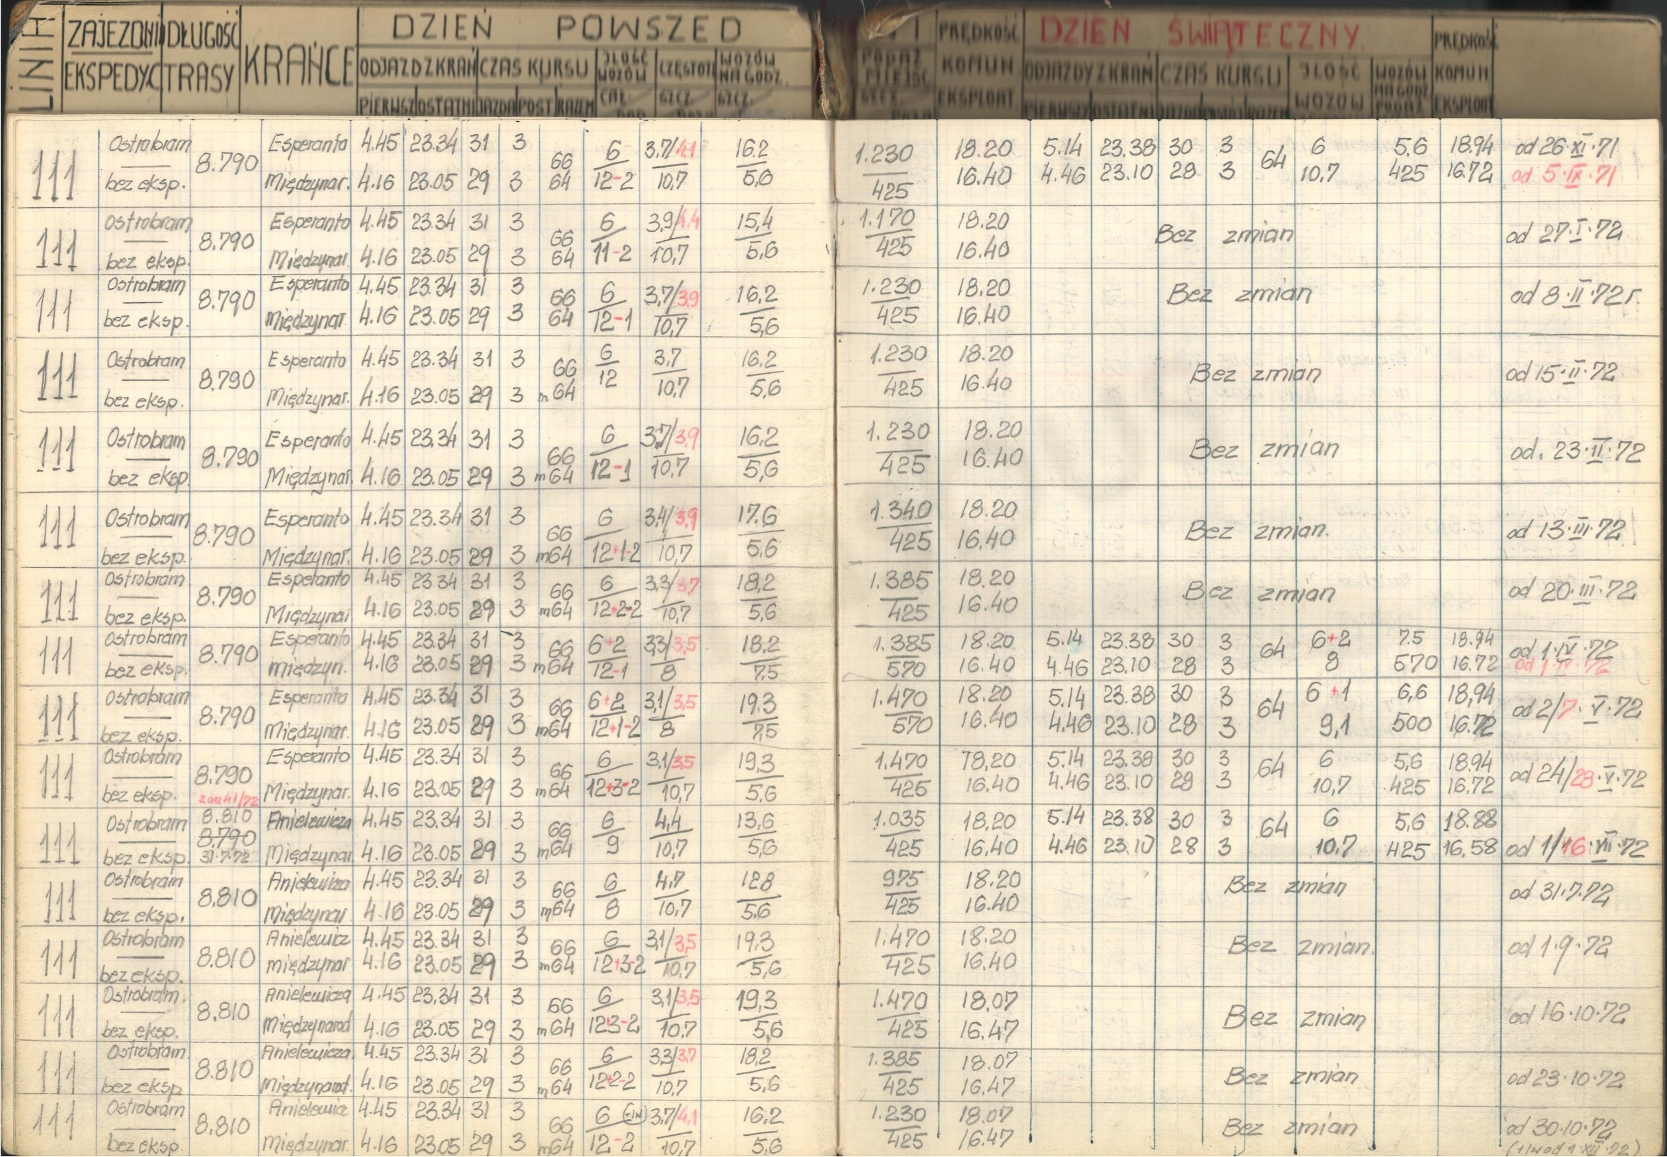 LINIA ZAJEZDNIA DŁUGOŚĆ KRAŃCE DZIEŃ POWSZED PRĘDKOŚĆ DZIEŃ ŚWIĄTECZNY PRĘDKOŚĆ
EKSPEDYC TRASY ODJAZD Z KRAŃ CZAS KURSU ILOŚĆ WOZÓW CZĘSTOT WOZÓW NA GODZ. PODAŻ MIEJSC KOMUN ODJAZDY Z KRAŃ CZAS KURSU ILOŚĆ WOZÓW NA GODZ KOMUN
PIERWSZ OSTATNI JAZDA POST RAZEM CAŁ. SZCZ. SZCZ. SZCZ. EKSPLOAT PIERWSZ OSTATNI JAZDA RAZEM WOZÓW EKSPLOAT
111 Ostrobram 8.790 Esperanto 4.45 23.34 31 3 66 6 3,7/4,1 16.2 1.230 18.20 5.14 23.38 30 3 64 6 5,6 18.94 od 26·XI·71
bez eksp. Międzynar. 4.16 23.05 29 3 64 12-2 10,7 5,6 425 16.40 4.46 23.10 28 3 10,7 425 16.72 od 5·IX·71
111 Ostrobram 8.790 Esperanto 4.45 23.34 31 3 66 6 3,9/4,4 15,4 1.170 18.20 Bez zmian od 27·I·72
bez eksp. Międzynar 4.16 23.05 29 3 64 11-2 10,7 5,6 425 16.40
111 Ostrobram 8.790 Esperanto 4.45 23.34 31 3 66 6 3,7/3,9 16,2 1.230 18.20 Bez zmian od 8·II·72r.
bez eksp. Międzynar. 4.16 23.05 29 3 64 12-1 10,7 5,6 425 16.40
111 Ostrobram 8.790 Esperanto 4.45 23.34 31 3 66 6 3,7 16.2 1.230 18.20 Bez zmian od 15·II·72
bez eksp. Międzynar. 4.16 23.05 29 3 m64 12 10,7 5,6 425 16.40
111 Ostrobram 8.790 Esperanto 4.45 23.34 31 3 66 6 3,7/3,9 16,2 1.230 18.20 Bez zmian od. 23·II·72
bez eksp. Międzynar. 4.16 23.05 29 3 m64 12-1 10,7 5,6 425 16.40
111 Ostrobram 8.790 Esperanto 4.45 23.34 31 3 66 6 3,4/3,9 17.6 1.340 18.20 Bez zmian. od 13·III·72
bez eksp. Międzynar. 4.16 23.05 29 3 m64 12+1-2 10,7 5,6 425 16.40
111 Ostrobram 8.790 Esperanto 4.45 23.34 31 3 66 6 3,3/3,7 18,2 1.385 18.20 Bez zmian od 20·III·72
bez eksp. Międzynar 4.16 23.05 29 3 m64 12+2-2 10,7 5,6 425 16.40
111 Ostrobram 8.790 Esperanto 4.45 23.34 31 3 66 6+2 3,3/3,5 18.2 1.385 18.20 5.14 23.38 30 3 64 6+2 7.5 18.94 od 1·IV·72
bez eksp. międzyn. 4.16 23.05 29 3 m64 12-1 8 7,5 570 16.40 4.46 23.10 28 3 8 570 16.72
111 Ostrobram 8.790 Esperanto 4.45 23.34 31 3 66 6+2 3,1/3,5 19.3 1.470 18.20 5.14 23.38 30 3 64 6+1 6,6 18,94 od 2/7·V·72
bez eksp. Międzynar. 4.16 23.05 29 3 m64 12+1-2 8 7,5 570 16.40 4.46 23.10 28 3 9,1 500 16.72
111 Ostrobram 8.790 Esperanto 4.45 23.34 31 3 66 6 3,1/3,5 19,3 1.470 78,20 5.14 23.38 30 3 64 6 5,6 18.94 od 24/28·V·72
bez eksp. Międzynar. 4.16 23.05 29 3 m64 12+3-2 10,7 5,6 425 16.40 4.46 23.10 28 3 10,7 425 16.72
111 Ostrobram 8.810 Anielewicza 4.45 23.34 31 3 66 6 4,4 13,6 1.035 18,20 5.14 23.38 30 3 64 6 5,6 18.88 od 1/16·VII·72
8.790
bez eksp. 31·7·72 Międzynar 4.16 23.05 29 3 m64 9 10,7 5,6 425 16,40 4.46 23.10 28 3 10.7 425 16,58
111 Ostrobram 8.810 Anielewicza 4.45 23.34 31 3 66 6 4,7 12.8 975 18.20 Bez zmian od 31.7.72
bez eksp. Międzynar 4.16 23.05 29 3 m64 8 10,7 5,6 425 16.40
111 Ostrobram 8.810 Anielewicz 4.45 23.34 31 3 66 6 3,1/3,5 19.3 1.470 18.20 Bez zmian. od 1·9·72
bez eksp. międzynar 4.16 23.05 29 3 m64 12+3-2 10,7 5,6 425 16.40
111 Ostrobram. 8.810 Anielewicza 4.45 23.34 31 3 66 6 3,1/3,5 19,3 1.470 18,07 Bez zmian od 16·10·72
bez eksp. Międzynarod 4.16 23.05 29 3 m64 12+3-2 10,7 5,6 425 16.47
111 Ostrobram 8.810 Anielewicza 4.45 23.34 31 3 66 6 3,3/3,7 18,2 1.385 18.07 Bez zmian od 23·10·72
bez eksp Międzynarod. 4.16 23.05 29 3 m64 12+2-2 10,7 5,6 425 16.47
111 Ostrobram 8.810 Anielewicz 4.45 23.34 31 3 66 6 3,7/4,1 16,2 1.230 18.07 Bez zmian od 30.10.72
bez eksp. Międzynar. 4.16 23.05 29 3 m64 12-2 10,7 5,6 425 16.47